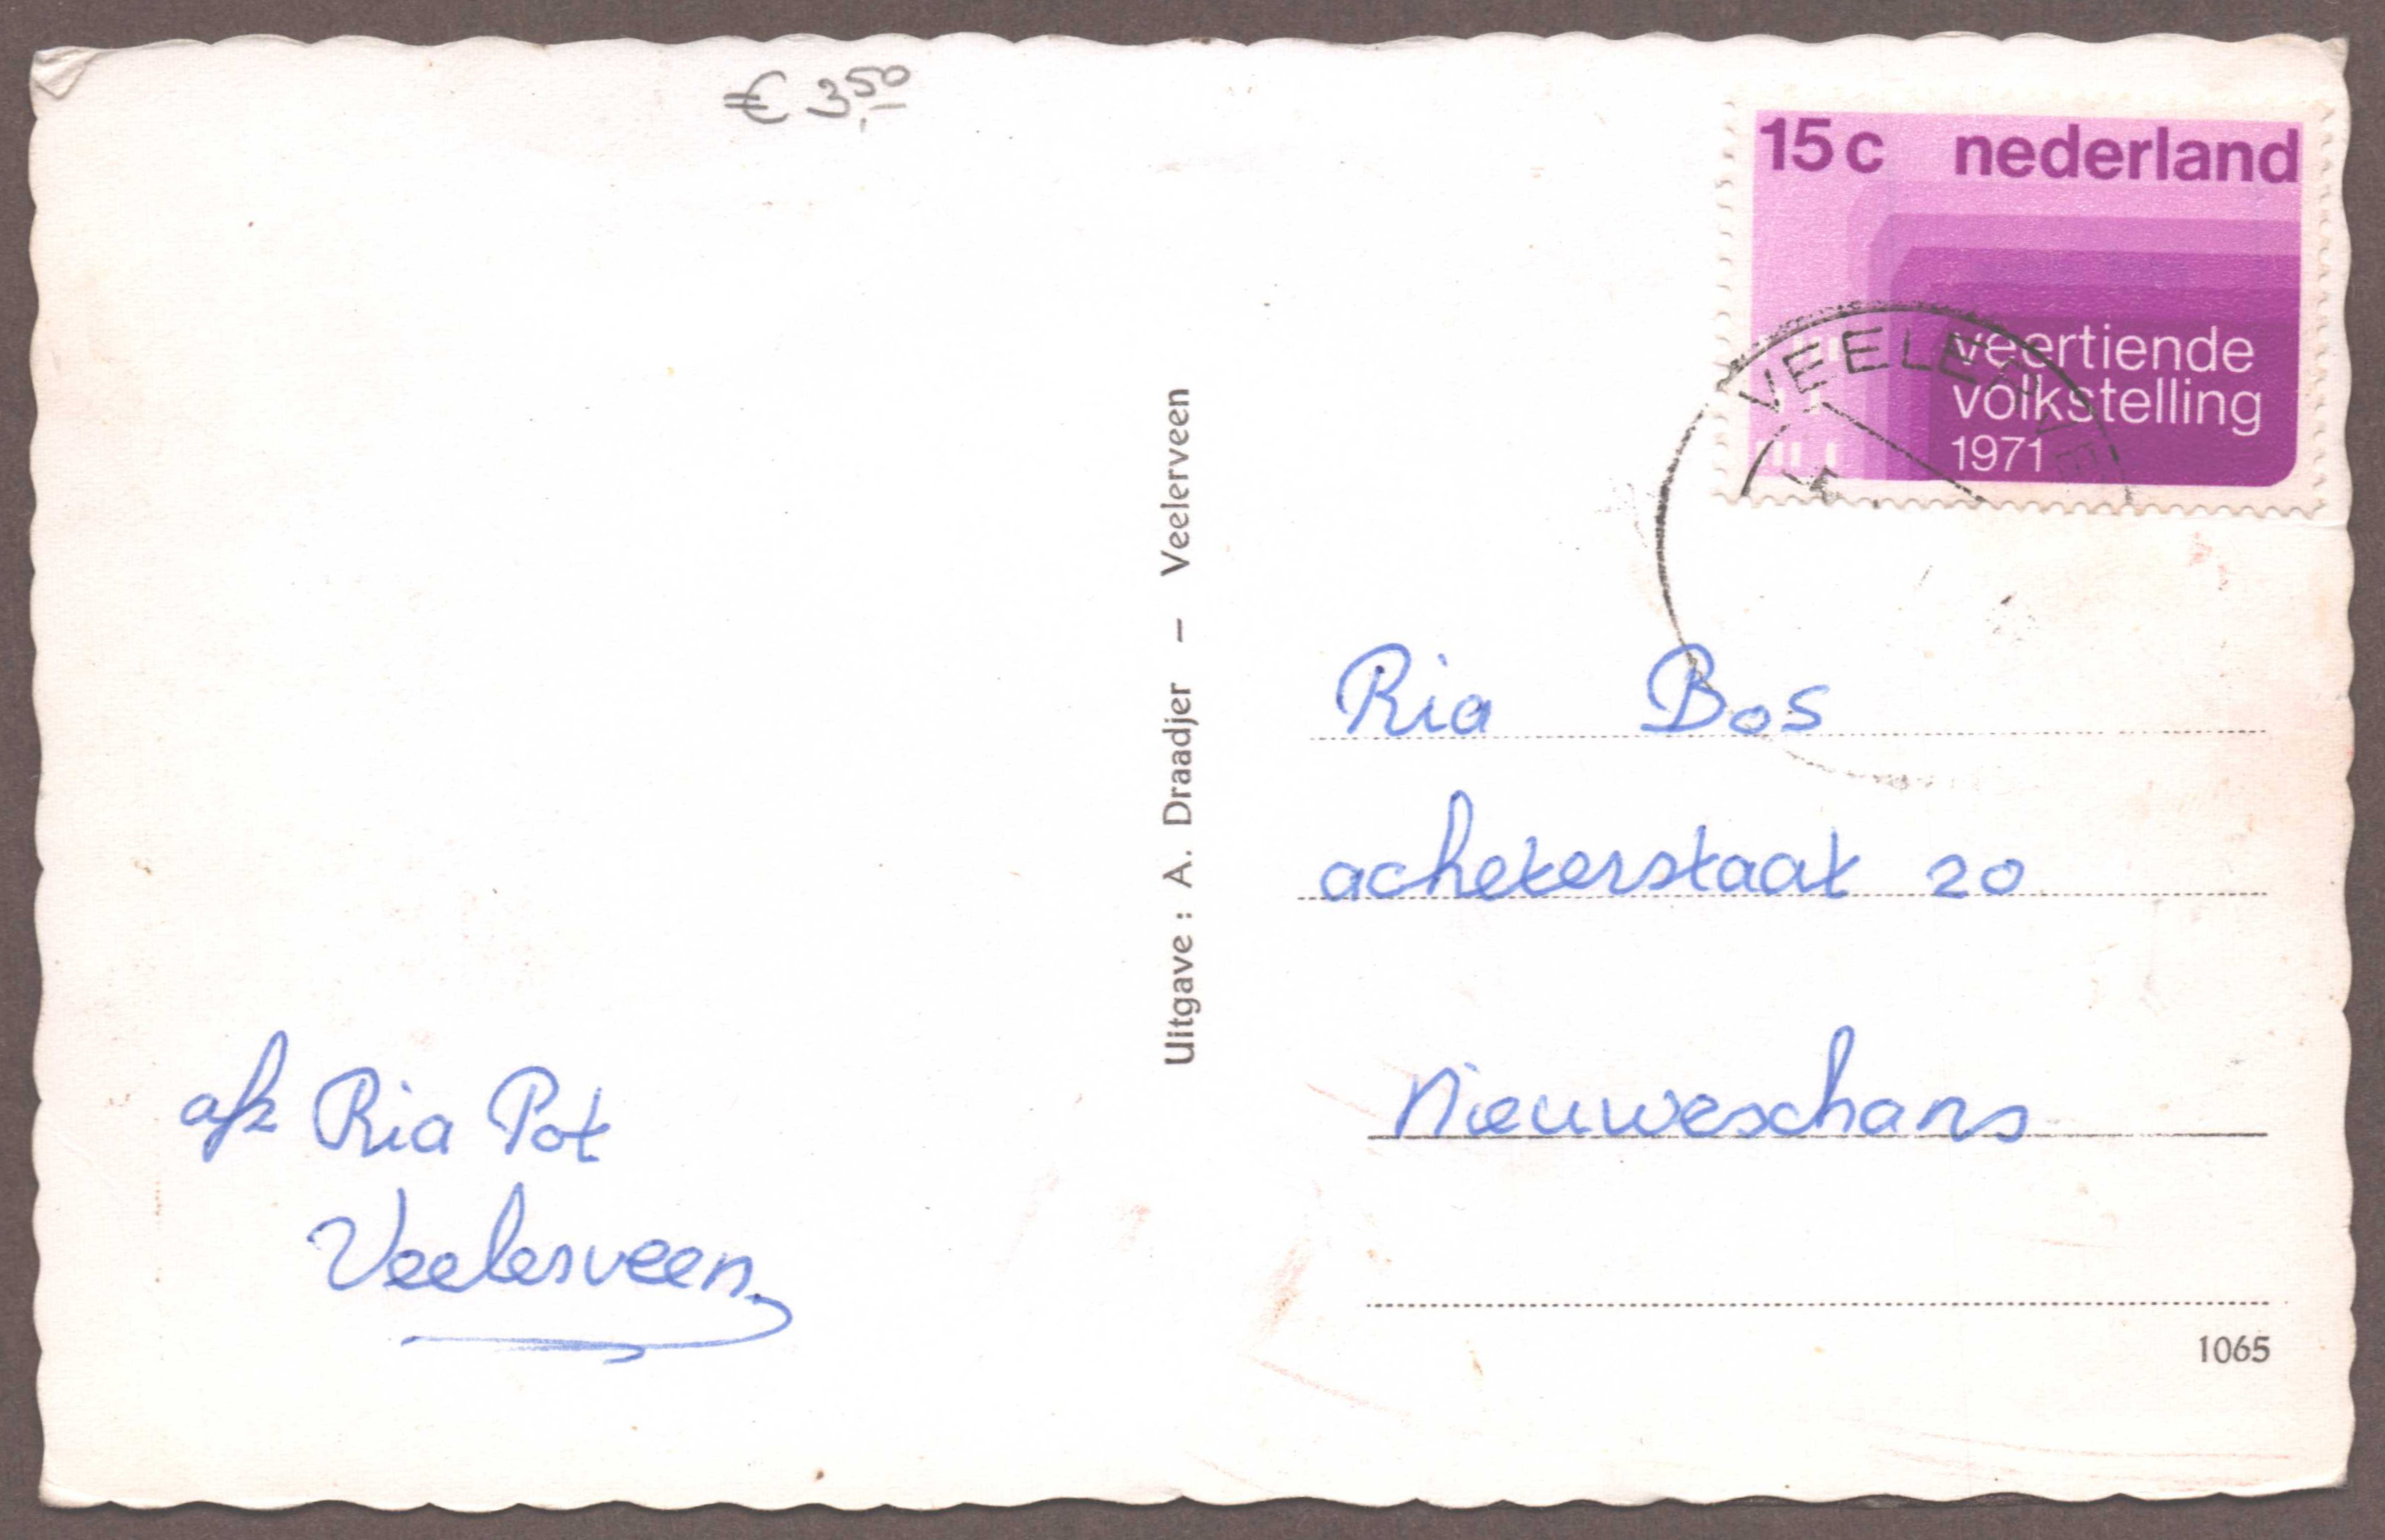 € 3,50
15c nederland
veertiende
volkstelling
1971
Uitgave : A. Draadjer – Veelerveen
Ria Bos
acheterstaat 20
Nieuweschans
afz Ria Pot
Veelerveen
1065